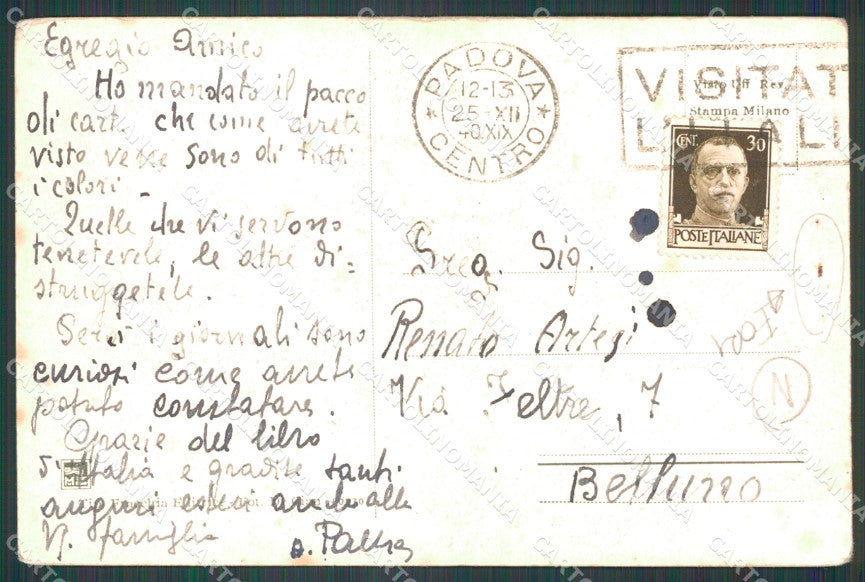 Egregio Amico
Ho mandato il pacco
di carte che come avrete
visto verse sono di tutti
i colori -
Quelle che vi servono
tenetevele, le altre di-
struggetele.
i giornali sono
curiosi come avrete
potuto constatare.
Grazie del libro
d'Italia e gradite tanti
auguri estesi anche alla
Vs. famiglia
PADOVA
12-13
25-XII
40.XIX
CENTRO
VISITAT
Visto Uff Rev.
Stampa Milano
CENT. 30
POSTE ITALIANE
Greg. Sig.
Renato Artesi
Via Feltre, 7
Belluno
N
CARTOLINOMANIA